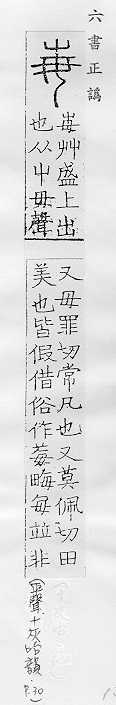 六書正譌
每艸盛上出
也从屮毋聲
又毋罪切常凡也又莫佩切田
美也皆假借俗作莓晦每並非
(平聲十灰咍韻.
P.30)